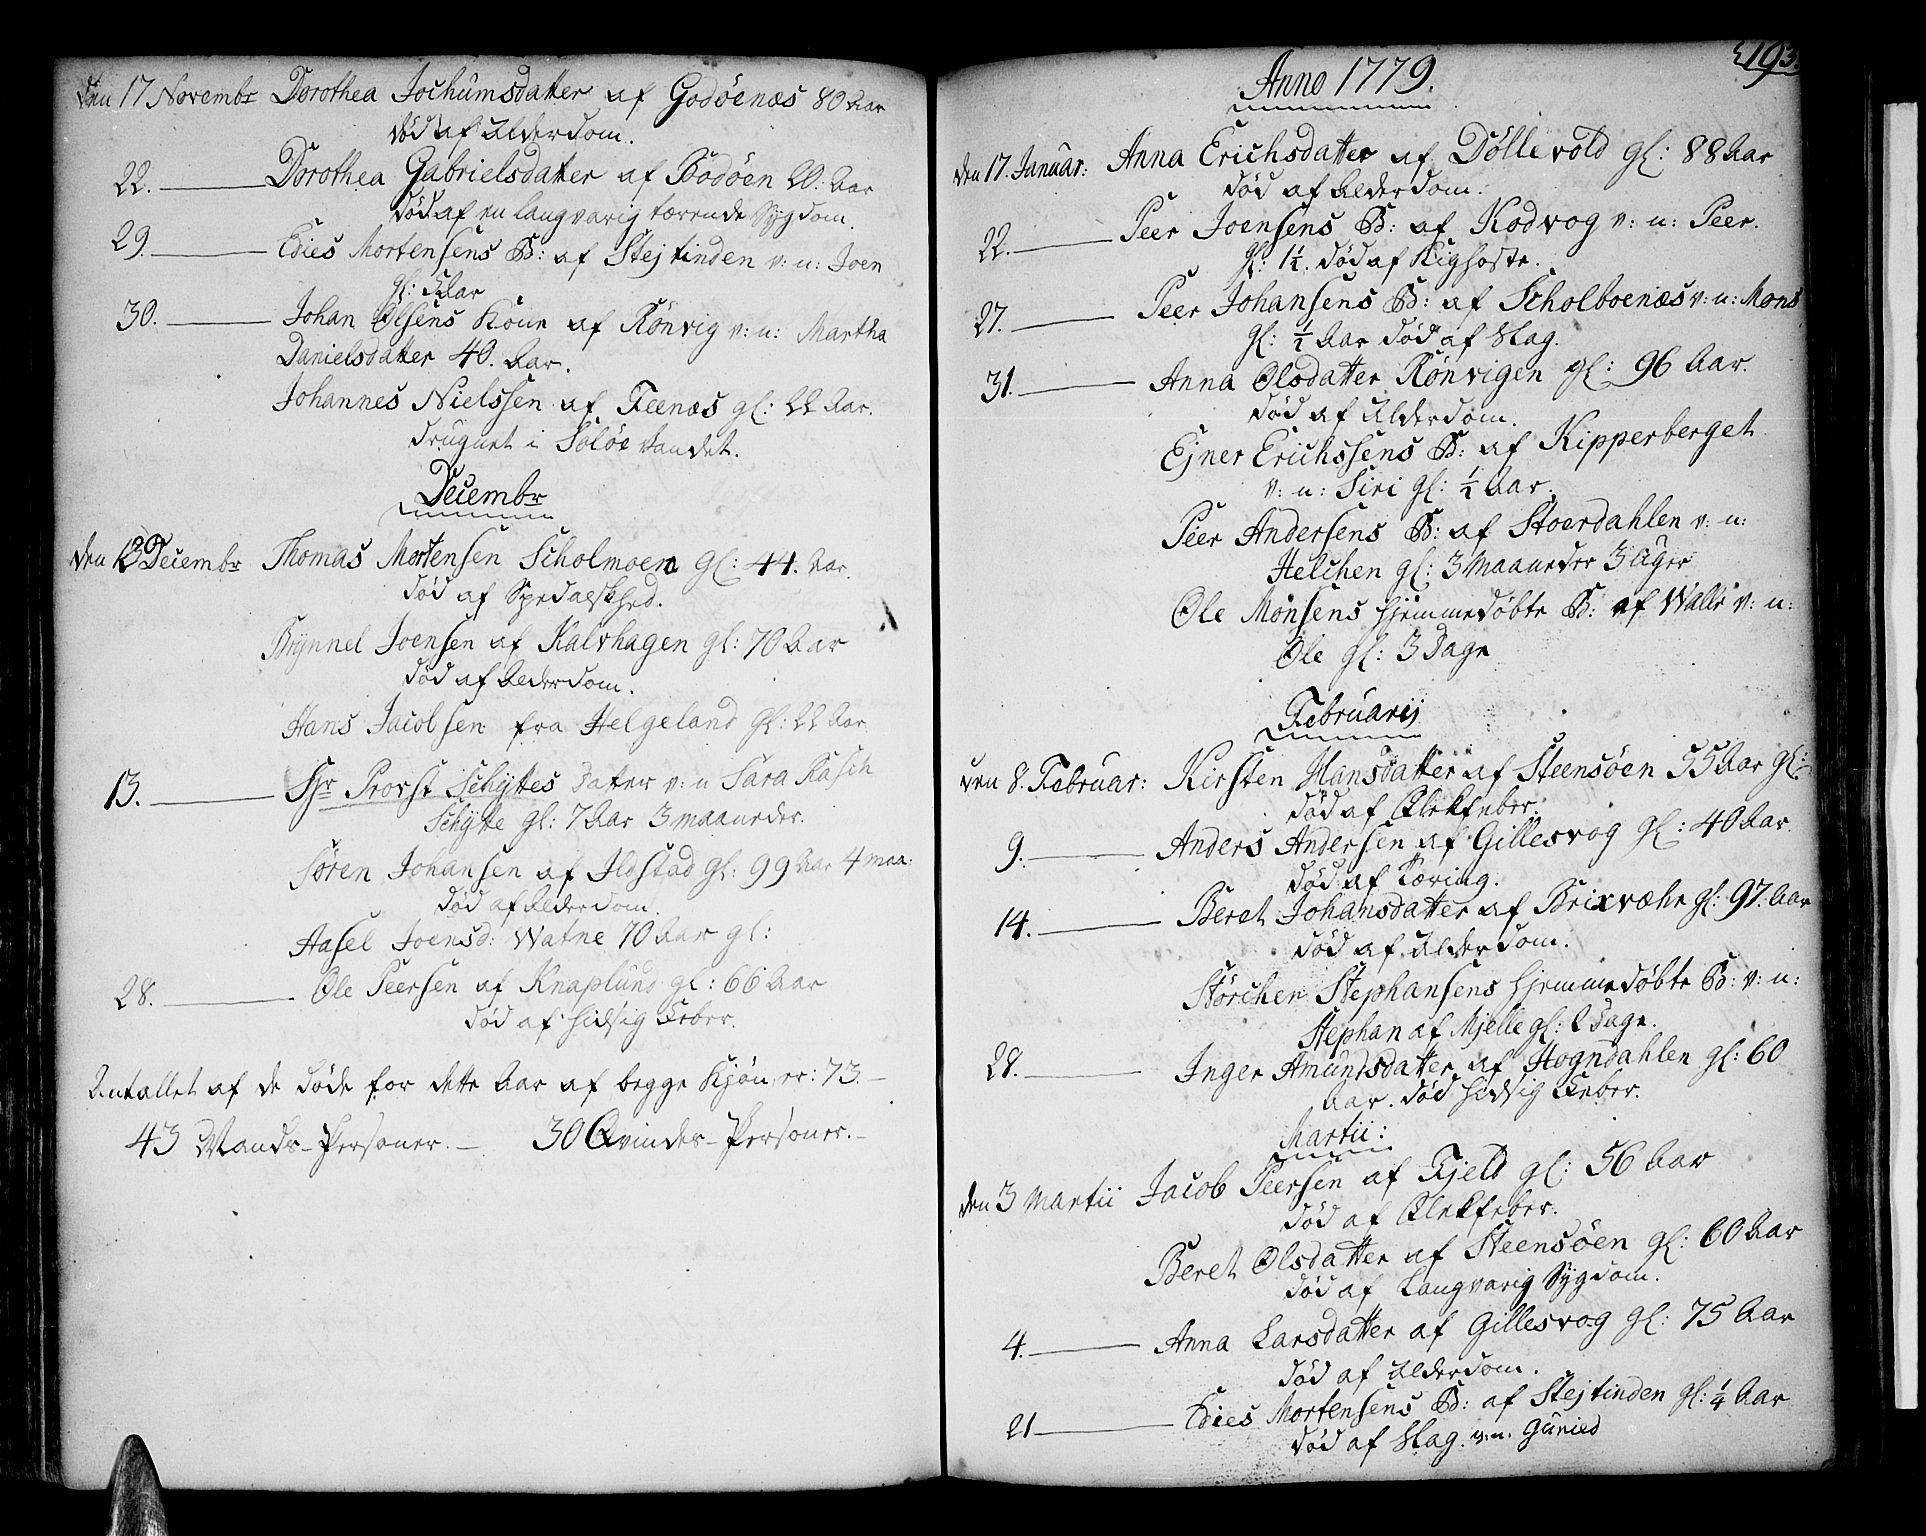 Den 17 Novembr Dorothea Jochumsdatter af Godøenæs 80 Aar
død af Alderdom.
22. Dorothea Gabrielsdatter af Bodøen 20. Aar
død af en langvarig tærende Sygdom.
29. Edies Mortensens B: af Stejtinden v: n: Joen
gl: 5 Aar
30. Johan Olsens Kone af Rönvig v: n: Martha
Danielsdatter 40. Aar.
Johannes Nielssen af Feenæs gl: 22 Aar.
drugnet i Soløe Vandet.
Decembr
den Decembr Thomas Mortensen Scholmoen gl: 44. Aar.
død af Spedalskhed.
Brynnel Joensen af Kalvhagen gl: 70 Aar
død af Alderdom.
Hans Jacobsen fra Helgeland gl: 22 Aar
13. Hr Provst Schyttes Dater v: n Sara Rasch
Schytte gl: 7 Aar 3 maaneder.
Sören Johansen af Ildstad gl: 99 Aar 4 maa:
død af Alderdom.
Aasel Joensd: Watne 70 Aar gl:
28. Ole Peersen af Knaplund gl: 66 Aar
død af hidsig Feber.
Antallet af de døde for dette Aar af begge Kjøn er: 73.–
43 Mands-Personer. – 30 Qvinder-Personer.–
193.
Anno 1779.
den 17. Januar: Anna Erichsdatter af Döllevold gl: 88 Aar
død af Alderdom.
22. Peer Joensens B: af Kodvog v: n: Peer.
gl: 1½. død af Kighoste.
27. Peer Johansens B: af Scholboenæs v: n: Mons
gl: ½ Aar død af Slag.
31. Anna Olsdatter Rönvigen gl: 96 Aar.
død af Alderdom.
Ejner Erichssens B: af Kipperberget
v: n: Siri gl: ½ Aar.
Peer Andersens B: af Stoerdahlen v: n:
Helchen gl: 3 Maaneder 3 Uger
Ole Monsens hjemmedøbte B: af Walle v: n:
Ole gl: 3 Dage
Februarij
den 8. Februar: Kirsten Hansdatter af Steensöen 55 Aar gl:
død af Flekfeber.
9. Anders Andersen af Gillesvog gl: 40 Aar.
død af Tæring.
14. Beret Johansdatter af Brixvæhr gl: 97. Aar
død af Alderdom.
Störcher Stephansens hjemmedøbte B: v: n:
Stephan af Mjelle gl: 2 Dage.
28. Inger Amundsdatter af Hogndahlen gl: 60
Aar. død hidsig Feber.
Martii:
den 3 Martii Jacob Peersen af Fjeld gl: 56 Aar
død af Flekfeber.
Beret Olsdatter af Steensöen gl: 60 Aar
død af Langvarig Sygdom.
4. Anna Larsdatter af Gillesvog gl: 75 Aar
død af Alderdom.
21 Edies Mortensens B: af Stejtinden gl: ¼ Aar
død af Slag. v: n: Guried